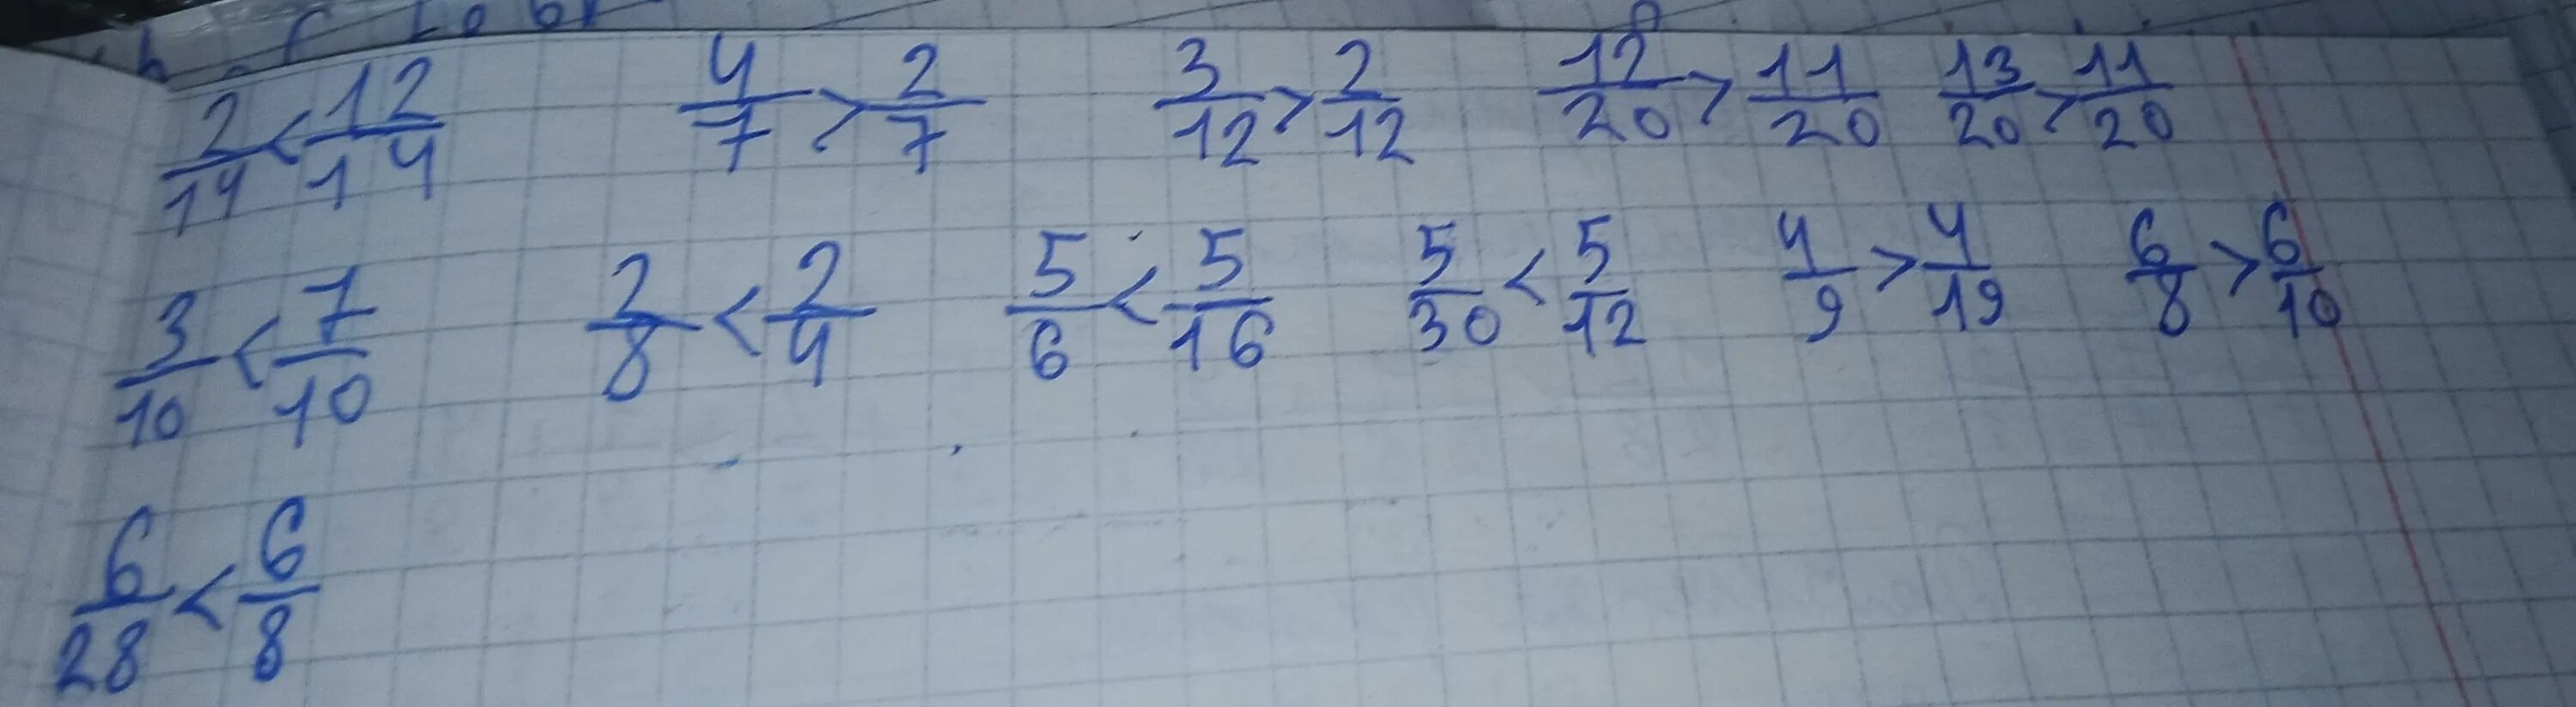 2/14 < 12/14 4/7 > 2/7 3/12 > 2/12 12/20 > 11/20 13/20 > 11/20
3/10 < 7/10 2/8 < 2/4 5/6 < 5/16 5/30 < 5/12 4/9 > 4/19 6/8 > 6/10
6/28 < 6/8